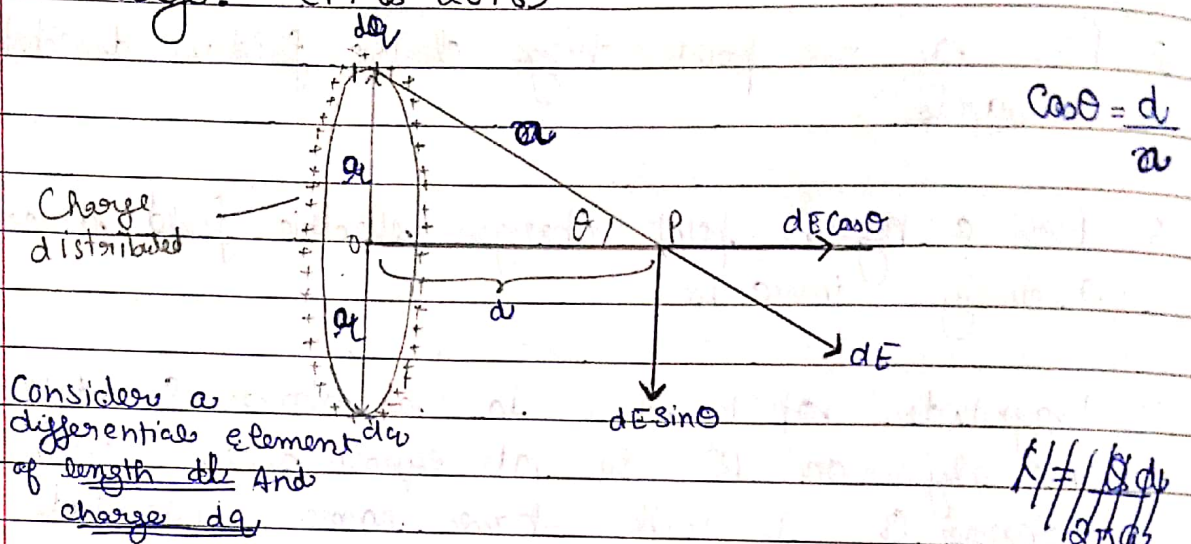 dq
Cosθ = d
x
x
r
Charge
distributed
θ
P
dECosθ
O
d
r
dE
Consider a
differential element
dq
dESinθ
of length dl And
charge dq